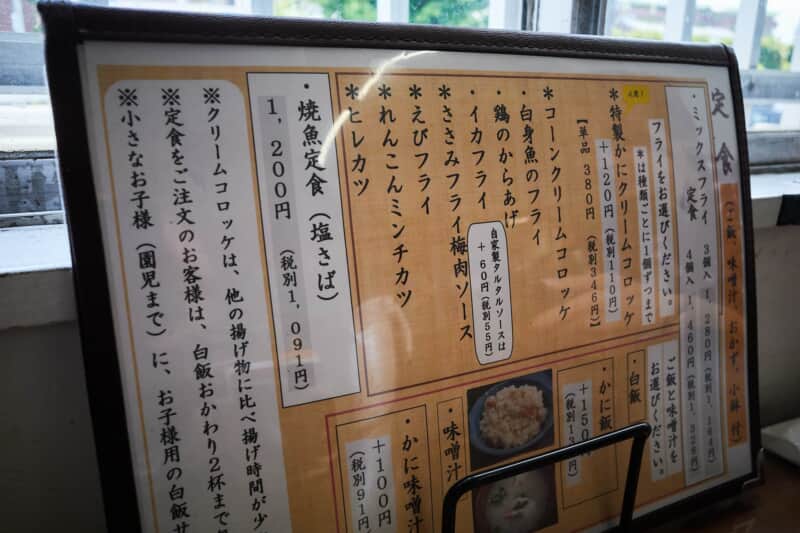 定食（ご飯、味噌汁、おかず、小鉢 付）
・ミックスフライ定食
3個入 1,280円（税別1,164円）
4個入 1,460円（税別1,328円）
フライをお選びください。
＊は種類ごとに1個ずつまで
＊特製かにクリームコロッケ
＋120円（税別110円）
【単品 380円（税別346円）】
＊コーンクリームコロッケ
・白身魚のフライ
・鶏のからあげ
・イカフライ
＊ささみフライ梅肉ソース
＊えびフライ
＊れんこんミンチカツ
＊ヒレカツ
自家製タルタルソースは
＋60円（税別55円）
ご飯と味噌汁を
お選びください。
・白飯
・かに飯
＋150
・味噌汁
・かに味噌汁
＋100円
（税別91円）
・焼魚定食（塩さば）
1,200円（税別1,091円）
※クリームコロッケは、他の揚げ物に比べ揚げ時間が少
※定食をご注文のお客様は、白飯おかわり2杯まで
※小さなお子様（園児まで）に、お子様用の白飯サ